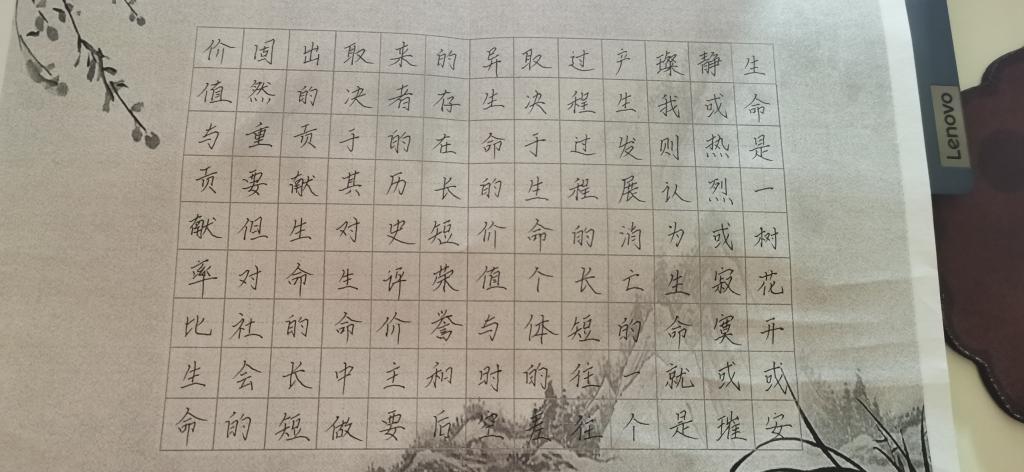 生命是一树花开或安
静或热烈或寂寞或璀
璨我则认为生命就是
产生发展消亡的一个
过程过程的长短往往
取决于生命个体的差
异生命的价值与时空
的存在长短荣誉和后
来者的历史评价主要
取决于其对生命中做
出的贡献生命的长短
固然重要但对社会的
价值与贡献率比生命
Lenovo